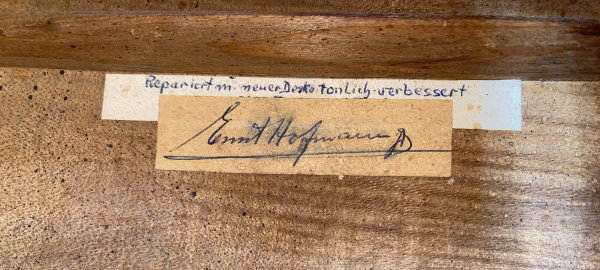 Repariert m. neuer Decke tonlich verbessert
Ernst Hofmann